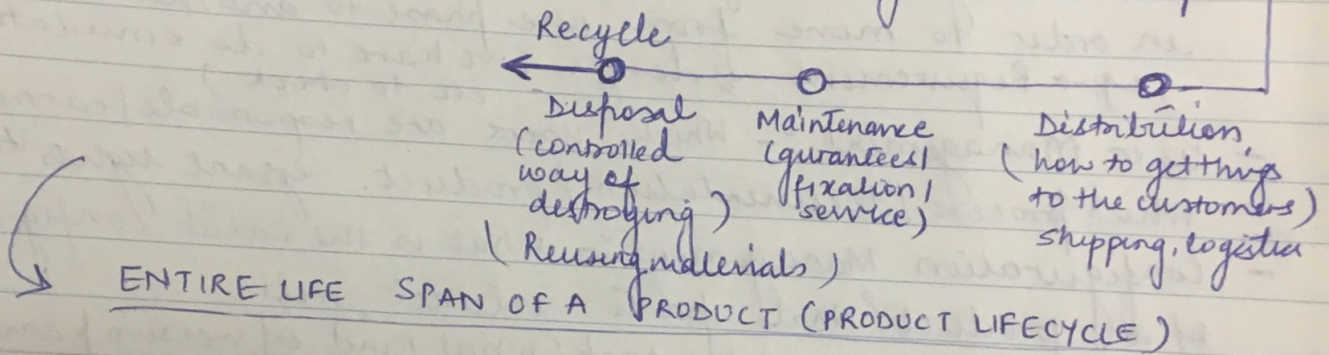 Recycle
Disposal
(controlled
way of
destroying)
(Reusing materials)
Maintenance
(gurantees/
fixation/
service)
Distribution,
(how to get things
to the customers)
shipping, logistics
ENTIRE LIFE SPAN OF A PRODUCT (PRODUCT LIFECYCLE)